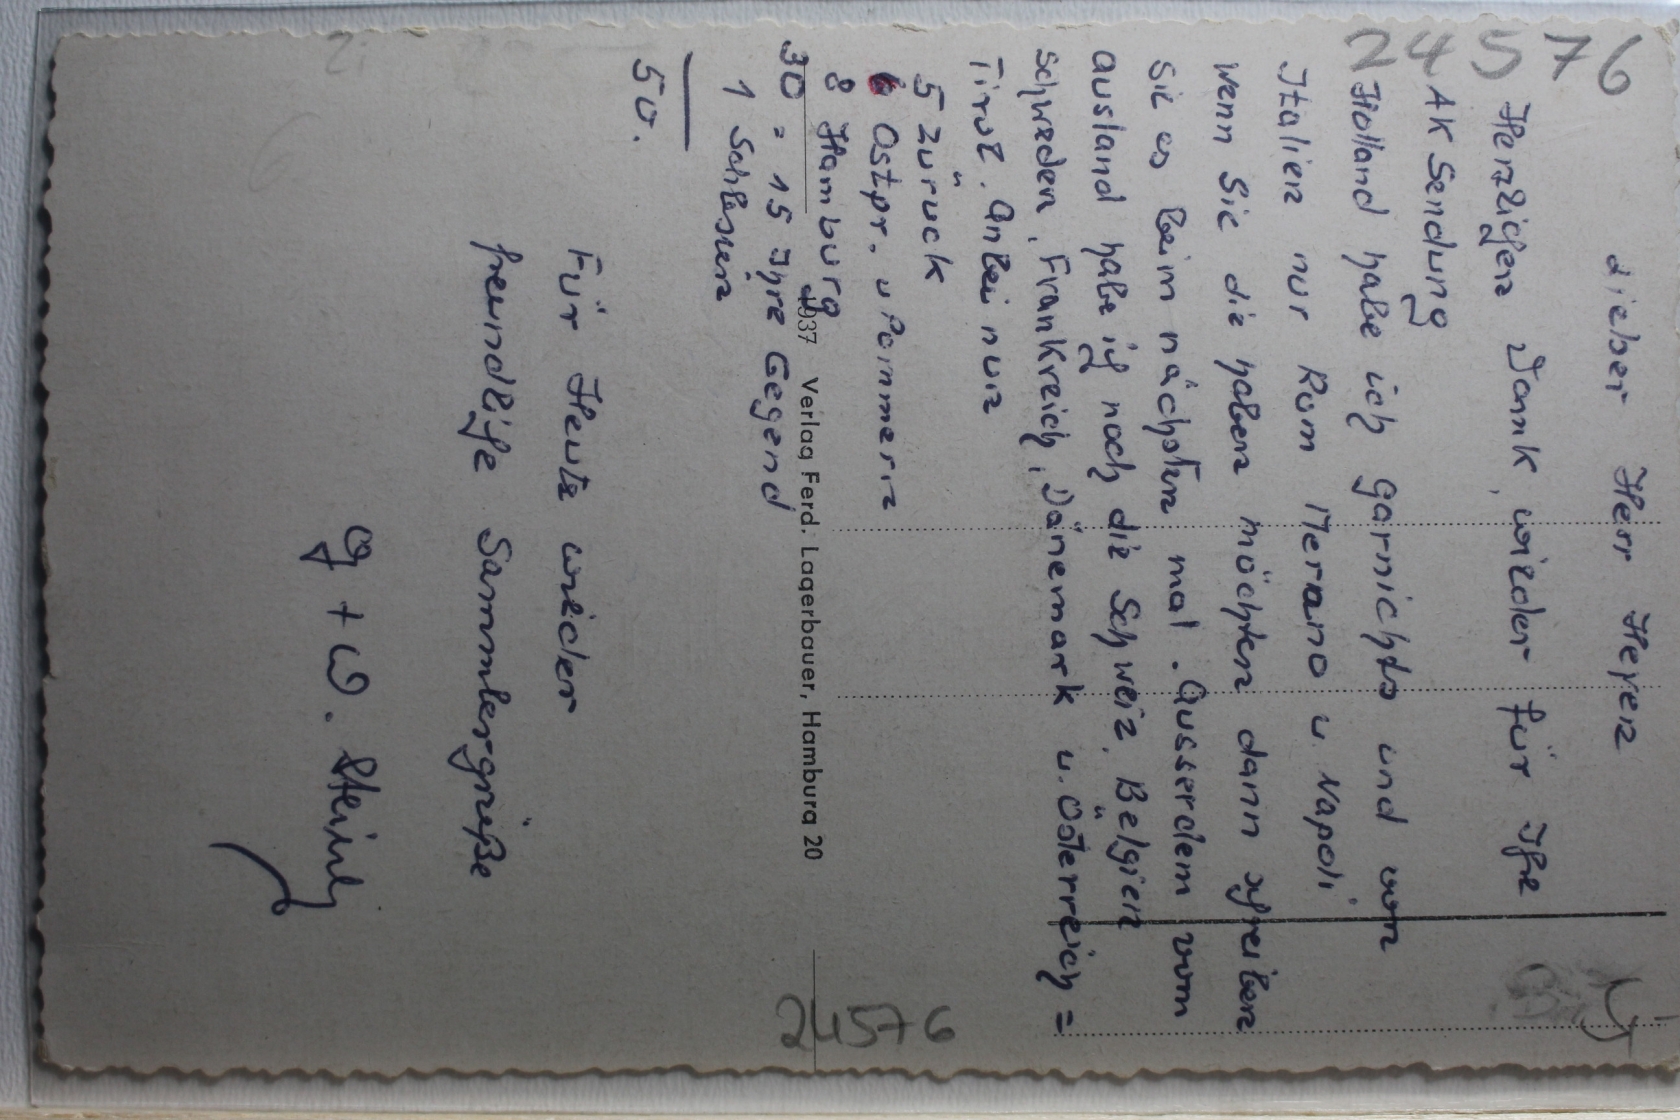 24576
Lieber Herr Heyen
Herzlichen Dank, wieder für Ihre
AK Sendung
Holland habe ich garnichts und von
Italien nur Rom Merano u. Napoli
wenn Sie die haben möchten dann schreiben
Sie es beim nächsten mal. Ausserdem vom
Ausland habe ich noch die Schweiz, Belgien
Schweden, Frankreich, Dänemark u. Österreich =
Tirol. Anbei nun
5 zurück
6 Ostpr. u Pommern
8 Hamburg
30 = 15 Ihre Gegend
1 Schlesien
50.
Für Heute wieder
freundliche Sammlergrüße
1937 Verlag Ferd. Lagerbauer, Hamburg 20
24576